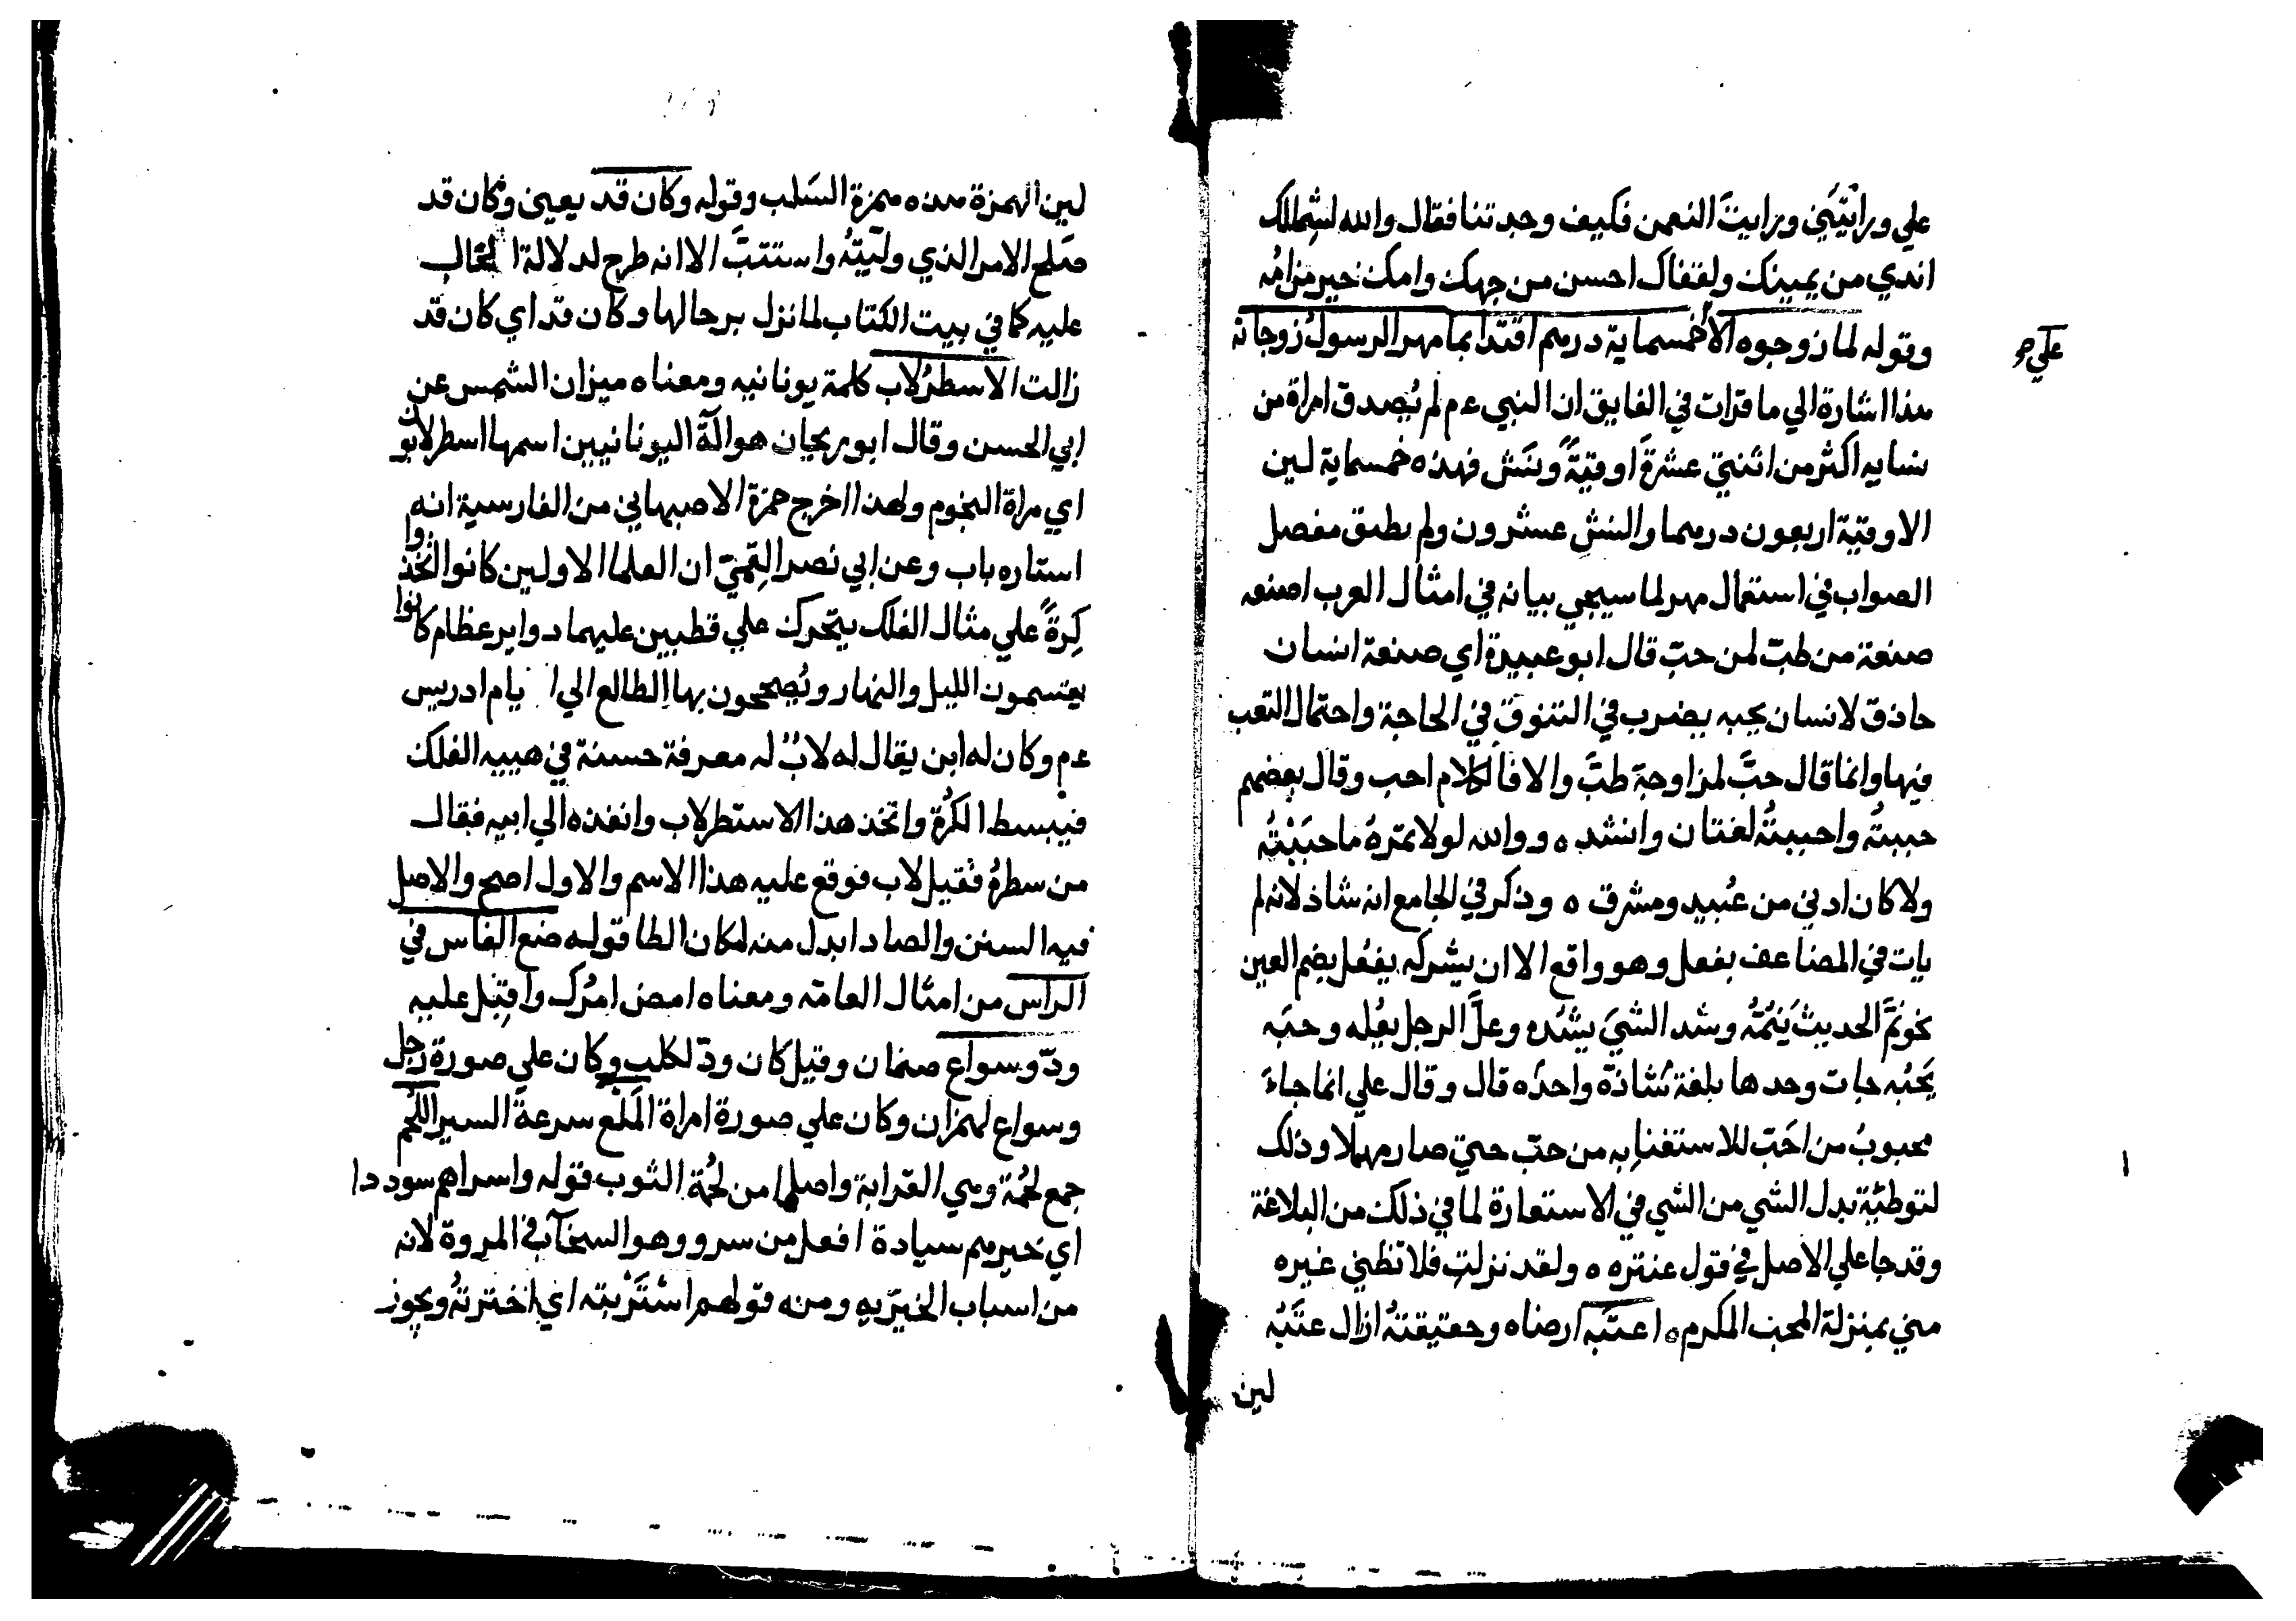 علي ورايتَني ورايتَ النعمن فكيف وجدتنا فقال والله لشمالك
اندي من يمينك ولقفاك احسن من جهك وامك خير من امُه
وقوله لما زوجوه الا خمسماية درهم اقتدا بما مهر الرسول زوجاته
علي حو
هذا اشارة الي ما قرات في الفايق ان النبي ءم لم يُصدق امراة من
نسايه اكثر من اثنتي عشرةَ اوقيّةً ونش فهذه خمسماية لين
الاوقية اربعون درهما والنش عشرون ولم يطبق مفصل
الصواب في استعمال مهر لما سيجي بيانه في امثال العرب اصنعه
صنعة من طبّ لمن حبّ قال ابو عبيدة اي صنعة انسان
حاذق لانسان يحبه يضرب في التنوق في الحاجة واحتمال التعب
فيها وانما قال حبَّ لمزاوجة طبَّ والا فالكلام احب وقال بعضهم
حببتُه واحببتُه لغتان وانشد ه ووالله لولا تمره ما حبَبْتُه
ولا كان ادني من عُبيد ومشرق ه وذكر في الجامع انه شاذ لانه لم
يات في المضاعف يفعل وهو واقع الا ان يشركه يفعُل بضم العين
نحو نمَّ الحديثَ ينُمّه وشد الشيَ يشُده وعلَّ الرجل يعُله وحبّه
يَحُبه جات وحدها بلغة شاذة واحدَه قال وقال علي انما جاءَ
محبوبُ من احَبّ للاستغنابه من حبّ حتي صار مهملا وذلك
لتوطئة تبدل الشي من الشي في الاستعارة لما في ذلك من البلاغة
وقد جا علي الاصل في قول عنتره ه ولقد نزلتِ فلا تظني غيره
مني بمنزلة المحب المكرم ه اعتبه ارضاه وحقيقتُه ازال عتبَه
لين
لين الهمزة هذه همزة السَلب وقوله وكان قد يعيني وكان قد
صَلح الامر الذي وليّتهُ واستتبَّ الا انه طرح لدلالة الحال
عليه كما في بيت الكتاب لما نزل برحالها وكان قد اي كان قد
زالت الاسطرُلاب كلمة يونانيه ومعناه ميزان الشمس عن
ابي الحسن وقال ابو ريحان هو الة اليونانيين اسمها اسطرلابون
اي مراة النجوم ولهذا اخرج حمزة الاصبهاني من الفارسية انه
استاره ياب وعن ابي نصر القمّيّ ان العلما الاولين كانوا اتخذوا
كرةً علي مثال الفلك يتحرك علي قطبين عليهما دواير عظام كانوا
يقتسمون الليل والنهار ويُصححون بها الطالع الي ايام ادريس
ءم وكان له ابن يقال له لابُ له معرفة حسنة في هييه الفلك
فيبسط الكُرة واتخذ هذا الاسطرلاب وانفذه الي ابيه فقال
من سطرهُ فقيل لاب فوقع عليه هذا الاسم والاول اصح والاصل
فيه السين والصاد ابدل منه لمكان الطا قوله ضع الفاس في
الراس من امثال العامّه ومعناه امض امرُك واقبِل عليه
ودّ وسواع صنمان وقيل كان ودّ لكلب وكان علي صورة رجل
وسواع لهمزان وكان علي صورة امراة المَلْع سرعة السير اللُحم
جمع لحُمة وهي القرابة واصلها من لُحمة الثوب قوله واسراهم سوددا
اي خيرهم سيادة افعل من سرو وهو السخآ في المروة لانه
من اسباب الخيريه ومنه قولهم استَرْيته اي اخترتُه ويجوز